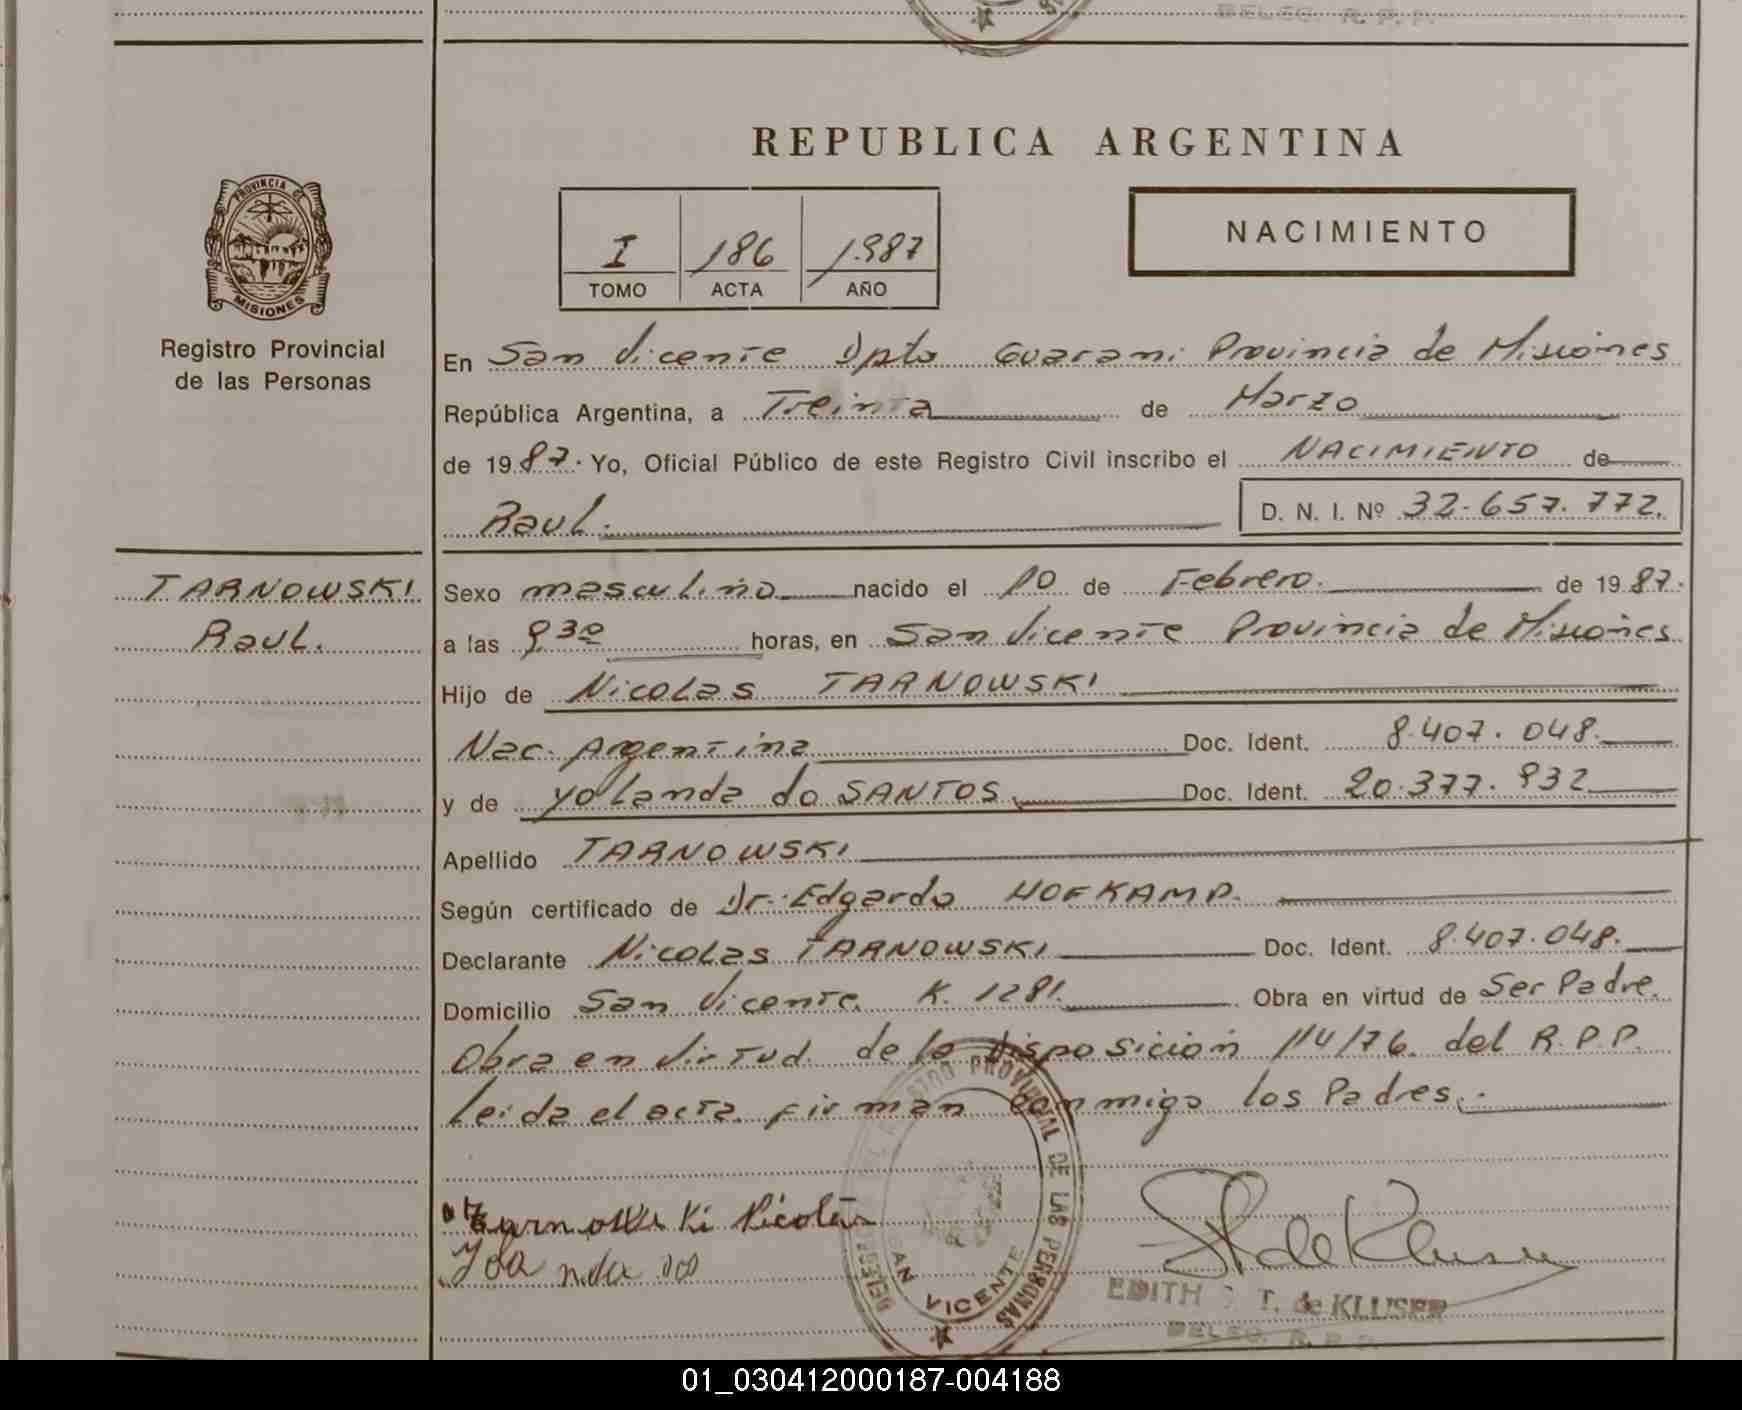 DELEG. R. P. P.
REPUBLICA ARGENTINA
PROVINCIA DE
MISIONES
Registro Provincial
de las Personas
I 186 1.987
TOMO ACTA AÑO
NACIMIENTO
En San Vicente Dpto Guarani Provincia de Misiones
República Argentina, a Treinta de Marzo
de 19 87. Yo, Oficial Público de este Registro Civil inscribo el NACIMIENTO de
Raul. D. N. I. Nº 32.657.772.
TARNOWSKI
Raul.
Sexo masculino nacido el 10 de Febrero. de 19 87.
a las 9 30 horas, en San Vicente Provincia de Misiones
Hijo de Nicolas TARNOWSKI
Nac. Argentina Doc. Ident. 8.407.048.
y de Yolanda do SANTOS. Doc. Ident. 20.377.932
Apellido TARNOWSKI
Según certificado de Dr. Edgardo HOFKAMP.
Declarante Nicolas TARNOWSKI Doc. Ident. 8.407.048.
Domicilio San Vicente K. 1281. Obra en virtud de Ser Padre.
Obra en Virtud. de la disposicion 114/76. del R.P.P.
Leida el acta. firman conmigo los Padres.
Tarnowski Nicolás
Yolanda do
REGISTRO PROVINCIAL DE LAS PERSONAS
SAN VICENTE
EDITH T. de KLUSER
DELEG. R. P. P.
01_030412000187-004188